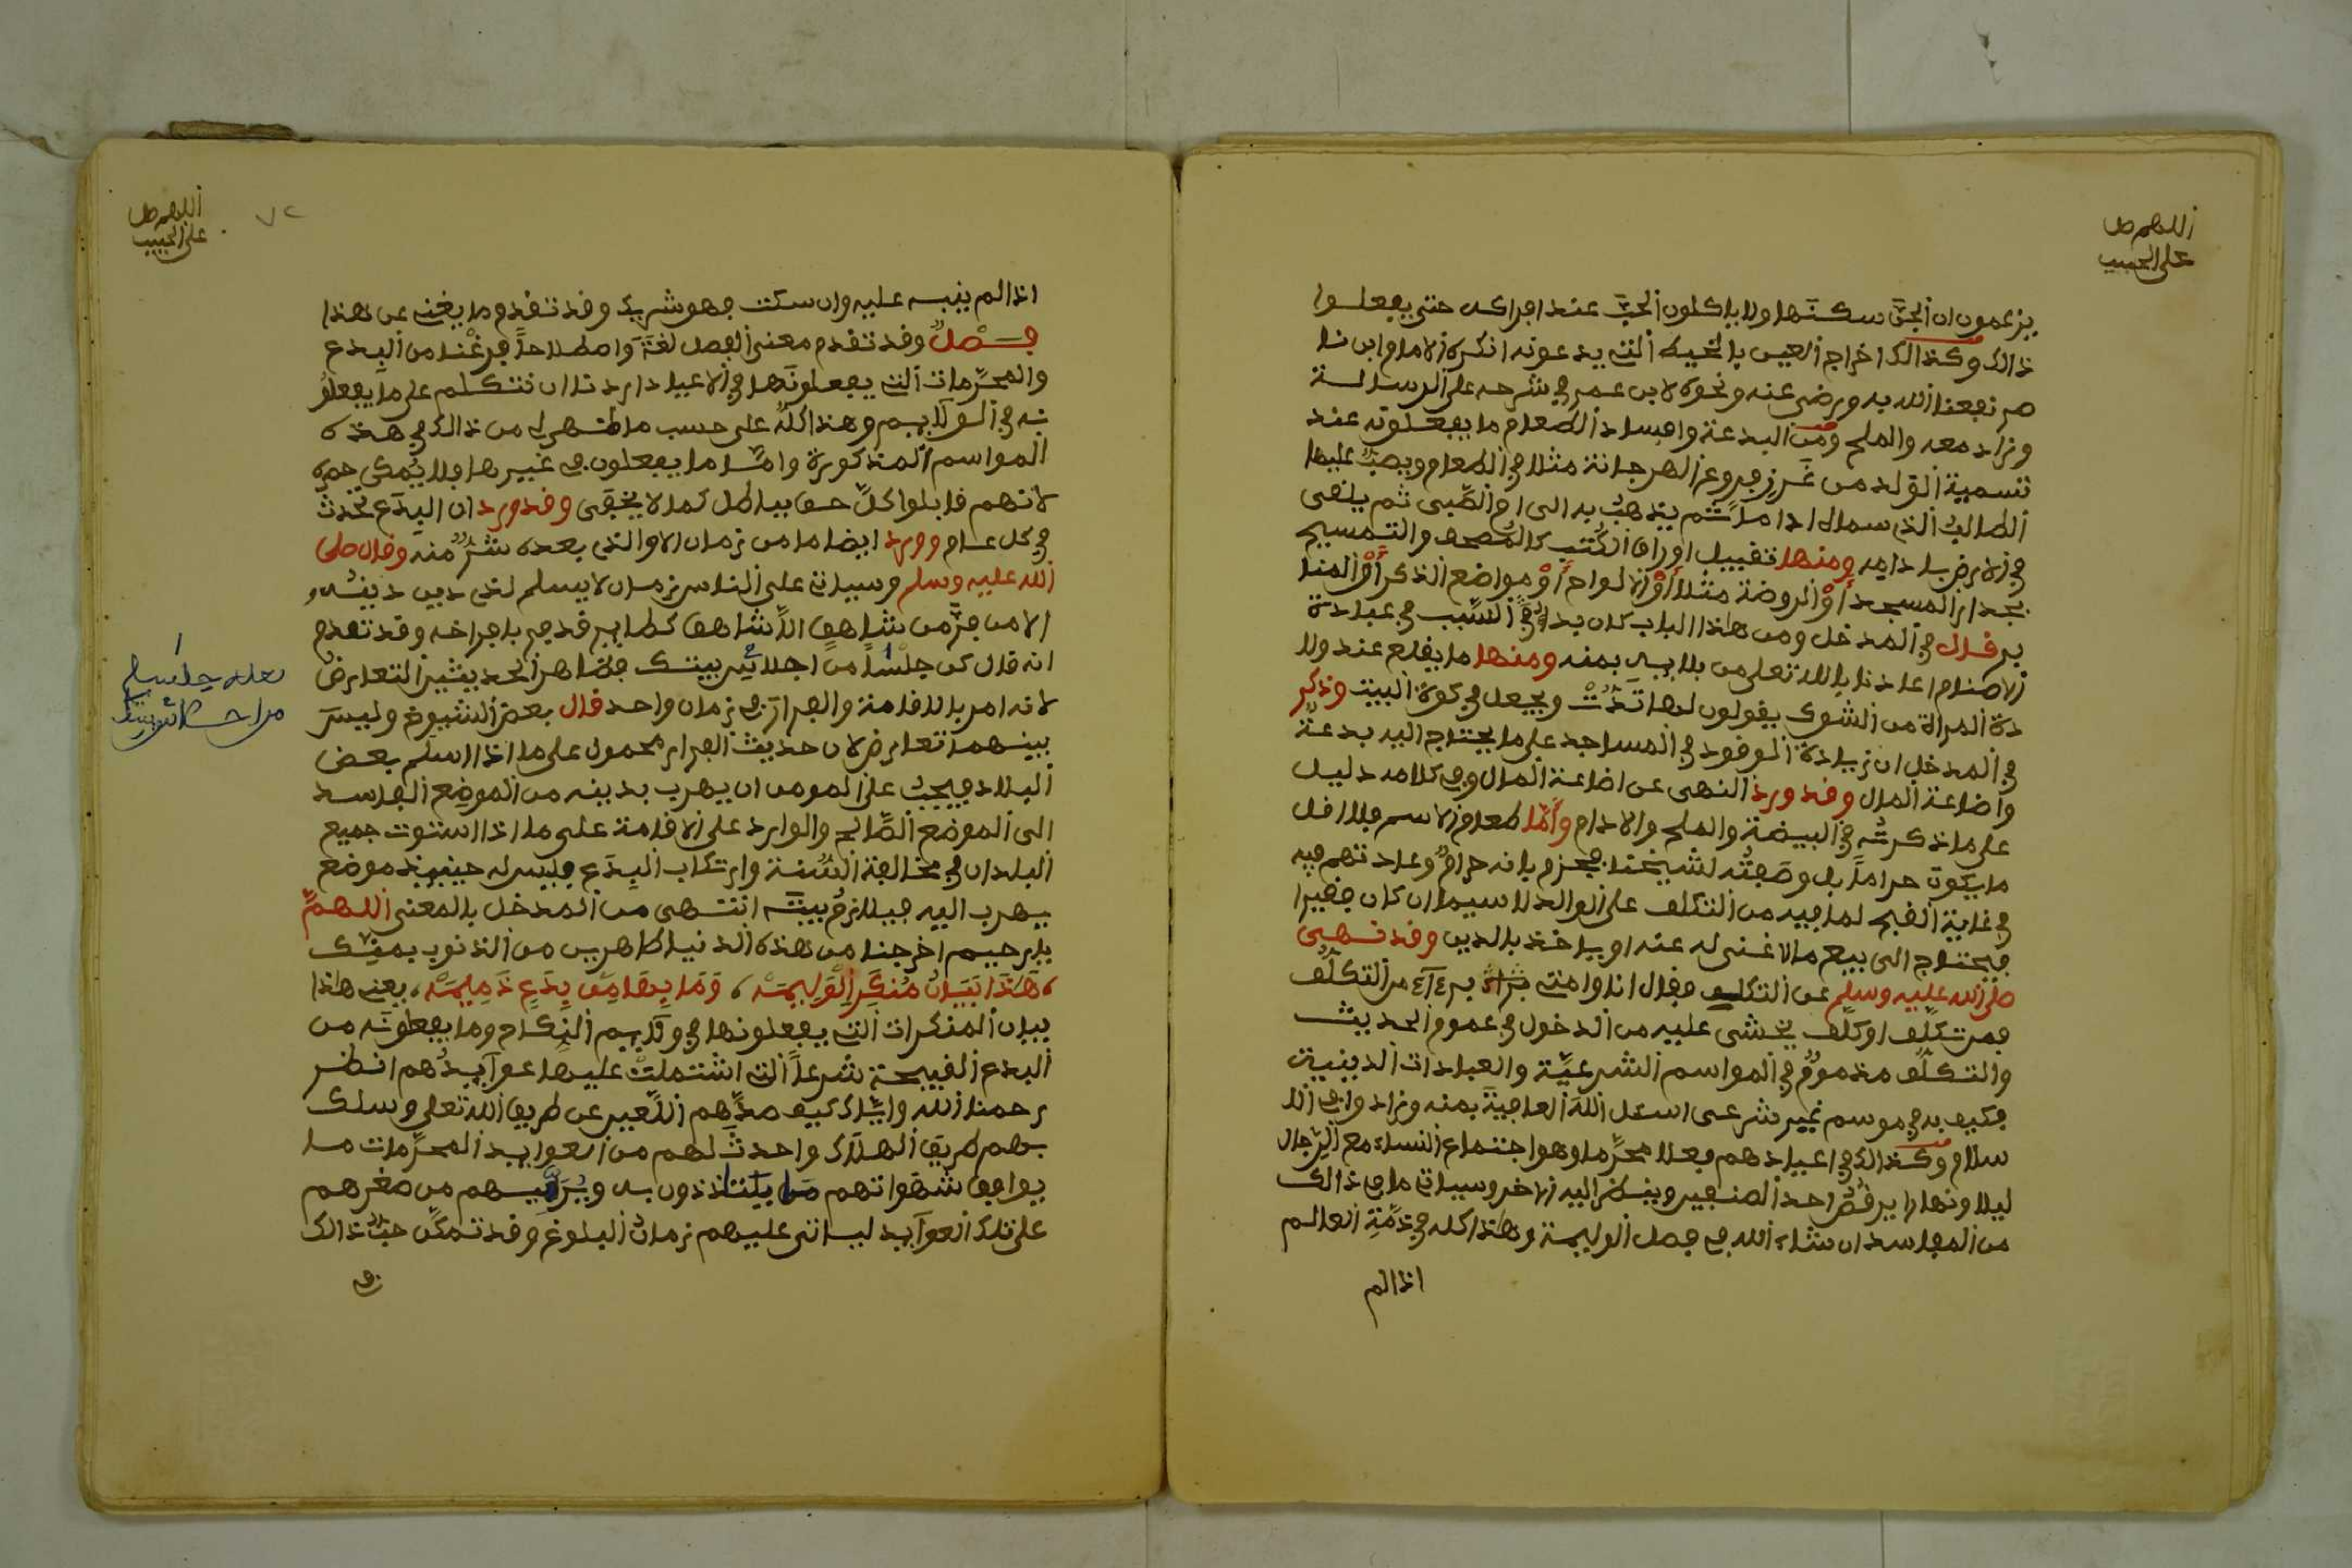 اللهم صل
على الحبيب
يزعمون ان الجن سكنها ولا ياكلون الحب عند افراكه حتى يفعلوا
ذالك وكذالك اخراج العيس بالخيط التي يدعونه انكره الامام ابن نا
صر نفعنا الله به ورضي عنه ونحوه لابن عمر في شرحه على الرسالة
وزاد معه والملح ومن البدعة وافساد الطعام ما يفعلونه عند
تسمية الولد من غرز فروع المرجانة مثلا في الطعام ويصب عليها
الطالب الذي سماه اداما ثم يذهب به الى ام الصبي ثم يلقى
في الارض بادامه ومنها تقبيل اوراق الكتب كالمصحف والتمسيح
بجدار المسجد أو الروضة مثلا أو الالواح أو مواضع الذكر أو المنا
بر قال في المدخل ومن هذا الباب كان بدء السبب في عبادة
الاصنام اعاذنا بالله تعلى من بلايه بمنه ومنها ما يقلع عند ولا
دة المرأة من الشوك يقولون لها تدت ويجعل في كوة البيت وذكر
في المدخل ان زيادة الوقود في المساجد على ما يحتاج اليه بدعة
واضاعة المال وقد ورد النهى عن اضاعة المال وفي كلامه دليل
على ما ذكرته في البيضة والملح والادام وأما طعام الاسم فلا اقل
ما يكون حراما بل وصفته لشيخنا فجزم بانه حرام وعادتهم فيه
في غاية القبح لما فيه من التكلف على الوالد لا سيما ان كان فقيرا
فيحتاج الى بيع ما لا غنى له عنه او ياخذ بالدين وقد نهى
صلى الله عليه وسلم عن التكلف فقال انا وامتي برءاء من التكلف
فمن تكلف او كلف يخشى عليه من الدخول في عموم الحديث
والتكلف مذموم في المواسم الشرعية والعبادات الدينية
فكيف به في موسم غير شرعى اسئل الله العافية بمنه وزادوا في الا
سلام وكذالك في اعيادهم فعلا محرما وهو اجتماع النساء مع الرجال
ليلا ونهارا يرقص احد الصنفين وينظر اليه الاخر وسياتي ما في ذالك
من المفاسد ان شاء الله في فصل الوليمة وهذا كله في ذمة العالم
اذا لم
اللهم صل
على الحبيب
٧٢
اذا لم ينبه عليه وان سكت فهو شريك وقد تقدم ما يغني عن هذا
فصل وقد تقدم معنى الفصل لغة واصطلاحا فرغنا من البدع
والمحرمات التي يفعلونها في الاعياد اردنا ان نتكلم على ما يفعلو
نه في الولايم وهذا كله على حسب ما ظهر لي من ذالك في هذه
المواسم المذكورة واما ما يفعلون في غيرها فلا يمكن حصره
لانهم قابلوا كل حق بباطل كما لا يخفى وقد ورد ان البدع تحدث
في كل عام وورد ايضا ما من زمان الا والذي بعده شر منه وقال صلى
الله عليه وسلم وسياتي على الناس زمان لا يسلم لذي دين دينه
الا من فر من شاهق الى شاهق كطاير قد فر بافراخه وقد تقدم
انه قال كن جلسا من اجلاس بيتك فظاهر الحديثين التعارض
لانه امر بالاقامة والفرار في زمان واحد قال بعض الشيوخ وليس
بينهما تعارض لان حديث الفرار محمول على ما اذا سلم بعض
البلاد فيجب على المومن ان يهرب بدينه من الموضع الفاسد
الى الموضع الصالح والوارد على الاقامة على ما اذا استوت جميع
البلدان في مخالفة السنة وارتكاب البدع فليس له حينئذ موضع
يهرب اليه فيلازم بيته انتهى من المدخل بالمعنى اللهم
يا رحيم اخرجنا من هذه الدنيا طاهرين من الذنوب بمنك
هذا بيان منكر الوليمه، وما بها من بدع ذميمه، يعني هذا
بيان المنكرات التي يفعلونها في ولايم النكاح وما يفعلونه من
البدع القبيحة شرعا التي اشتملت عليها عوآيدهم انظر
رحمنا الله واياك كيف صدهم اللعين عن طريق الله تعلى وسلك
بهم طريق الهلاك واحدث لهم من العوايد المحرمات ما
يوافق شهواتهم ما يلتذذون به ويربيهم من صغرهم
على تلك العوآيد لياتي عليهم زمان البلوغ وقد تمكن حب ذالك
في
لعله حلسا
من احلاس بيتك